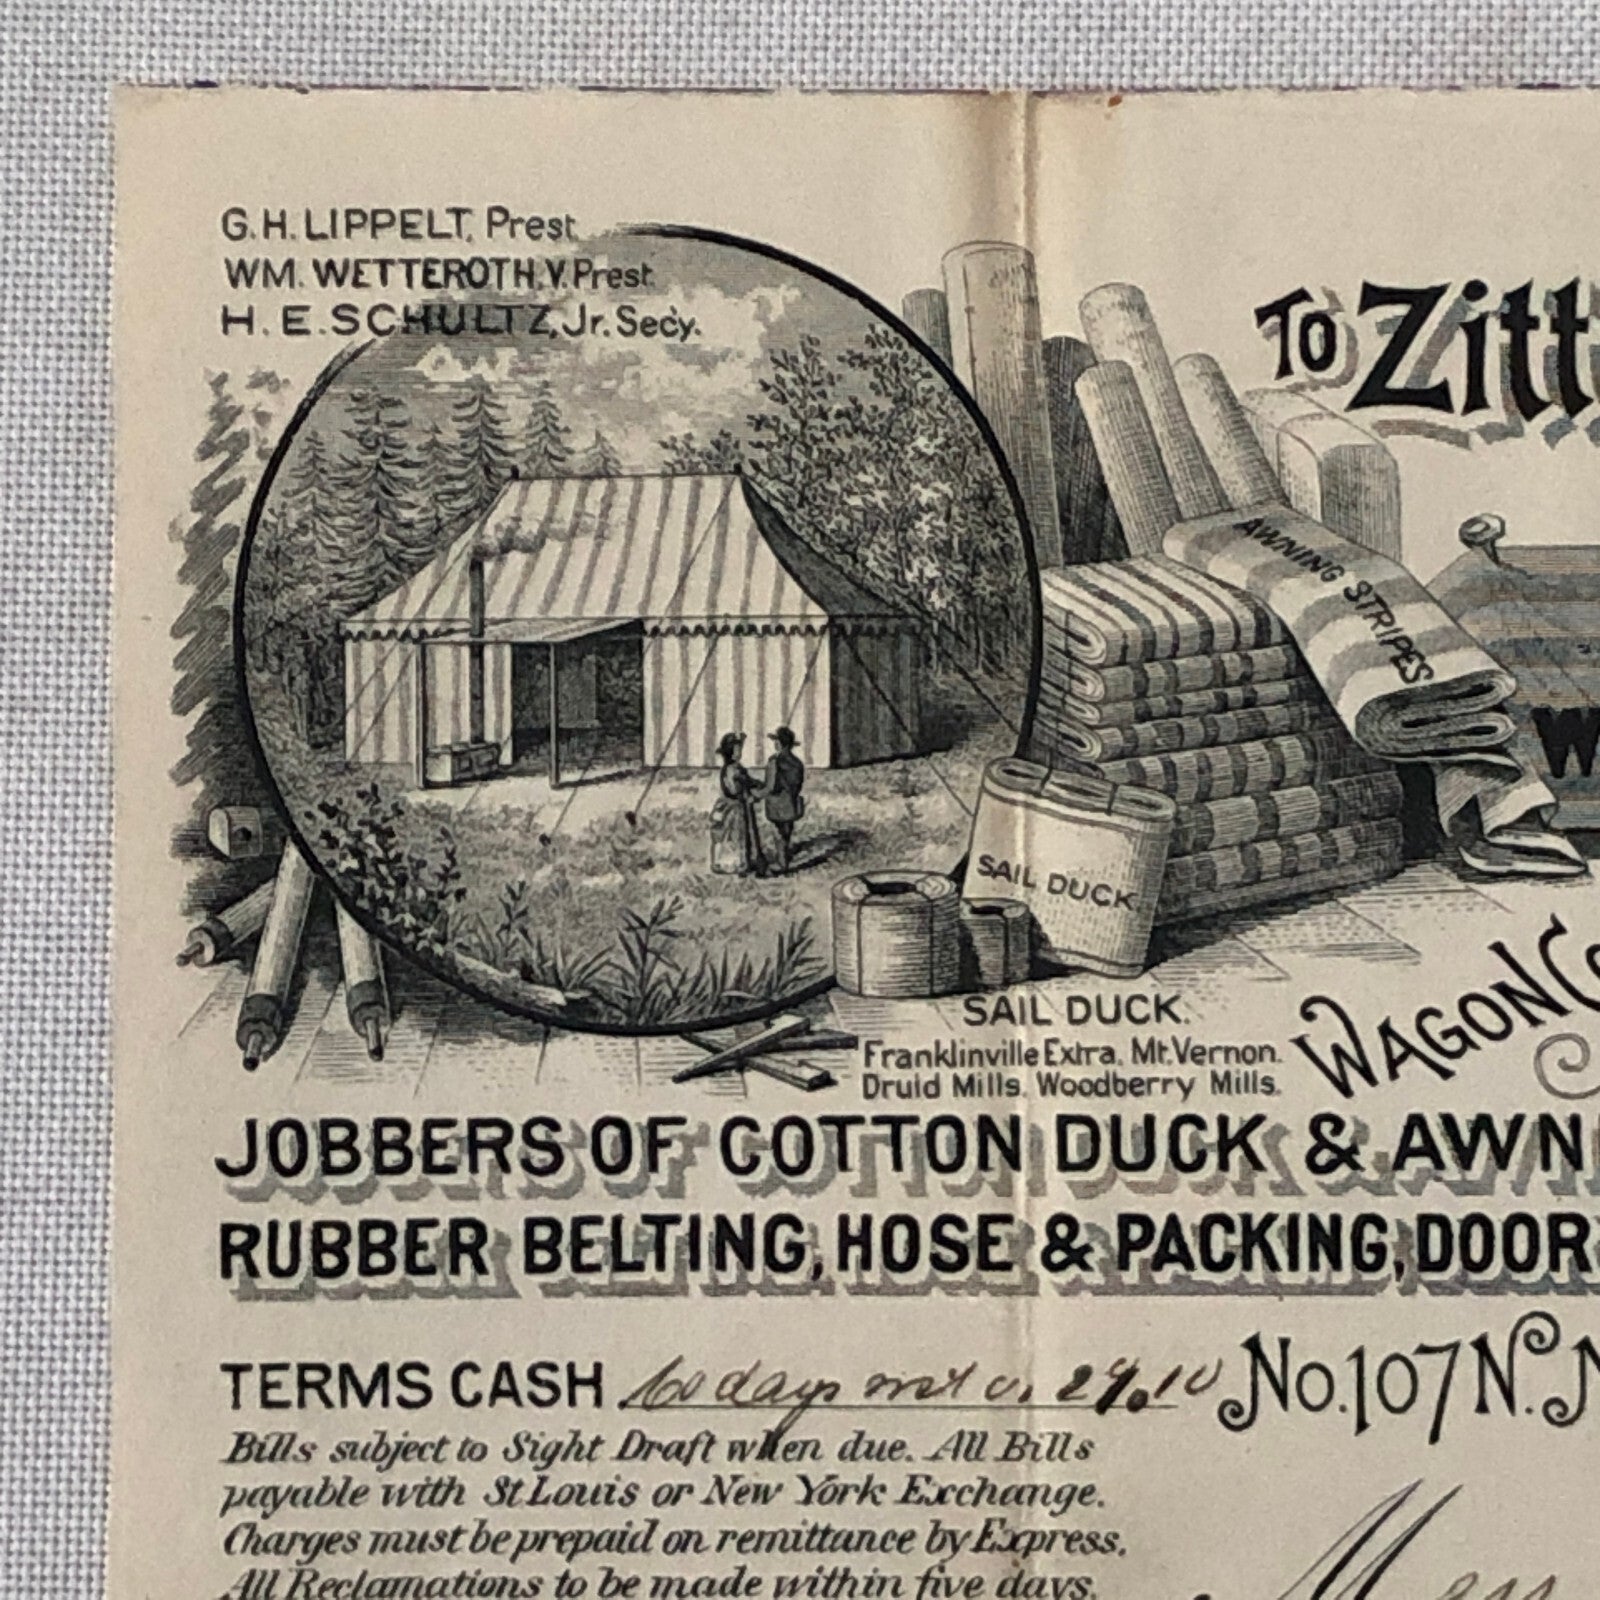 G.H. LIPPELT, Prest.
WM. WETTEROTH, V. Prest.
H. E. SCHULTZ, Jr. Secy.
To Zitt
AWNING STRIPES
W
SAIL DUCK
SAIL DUCK.
Franklinville Extra. Mt. Vernon.
Druid Mills. Woodberry Mills.
WAGON CO
JOBBERS OF COTTON DUCK & AWN
RUBBER BELTING, HOSE & PACKING, DOOR
TERMS CASH 60 days net 2% 10
No. 107 N. N
Bills subject to Sight Draft when due. All Bills
payable with St Louis or New York Exchange.
Charges must be prepaid on remittance by Express.
All Reclamations to be made within five days.